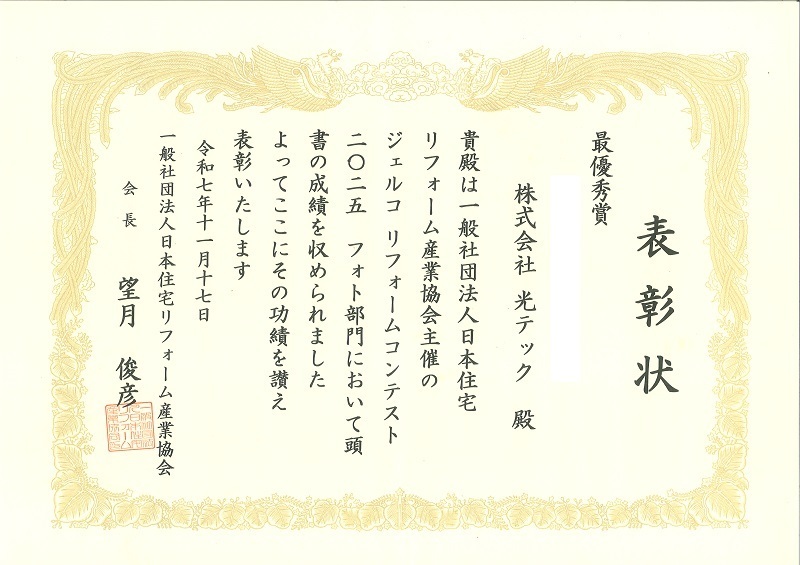 表彰状
最優秀賞
株式会社 光テック 殿
貴殿は一般社団法人日本住宅
リフォーム産業協会主催の
ジェルコ リフォームコンテスト
二〇二五 フォト部門において頭
書の成績を収められました
よってここにその功績を讃え
表彰いたします
令和七年十一月十七日
一般社団法人日本住宅リフォーム産業協会
会長 望月 俊彦